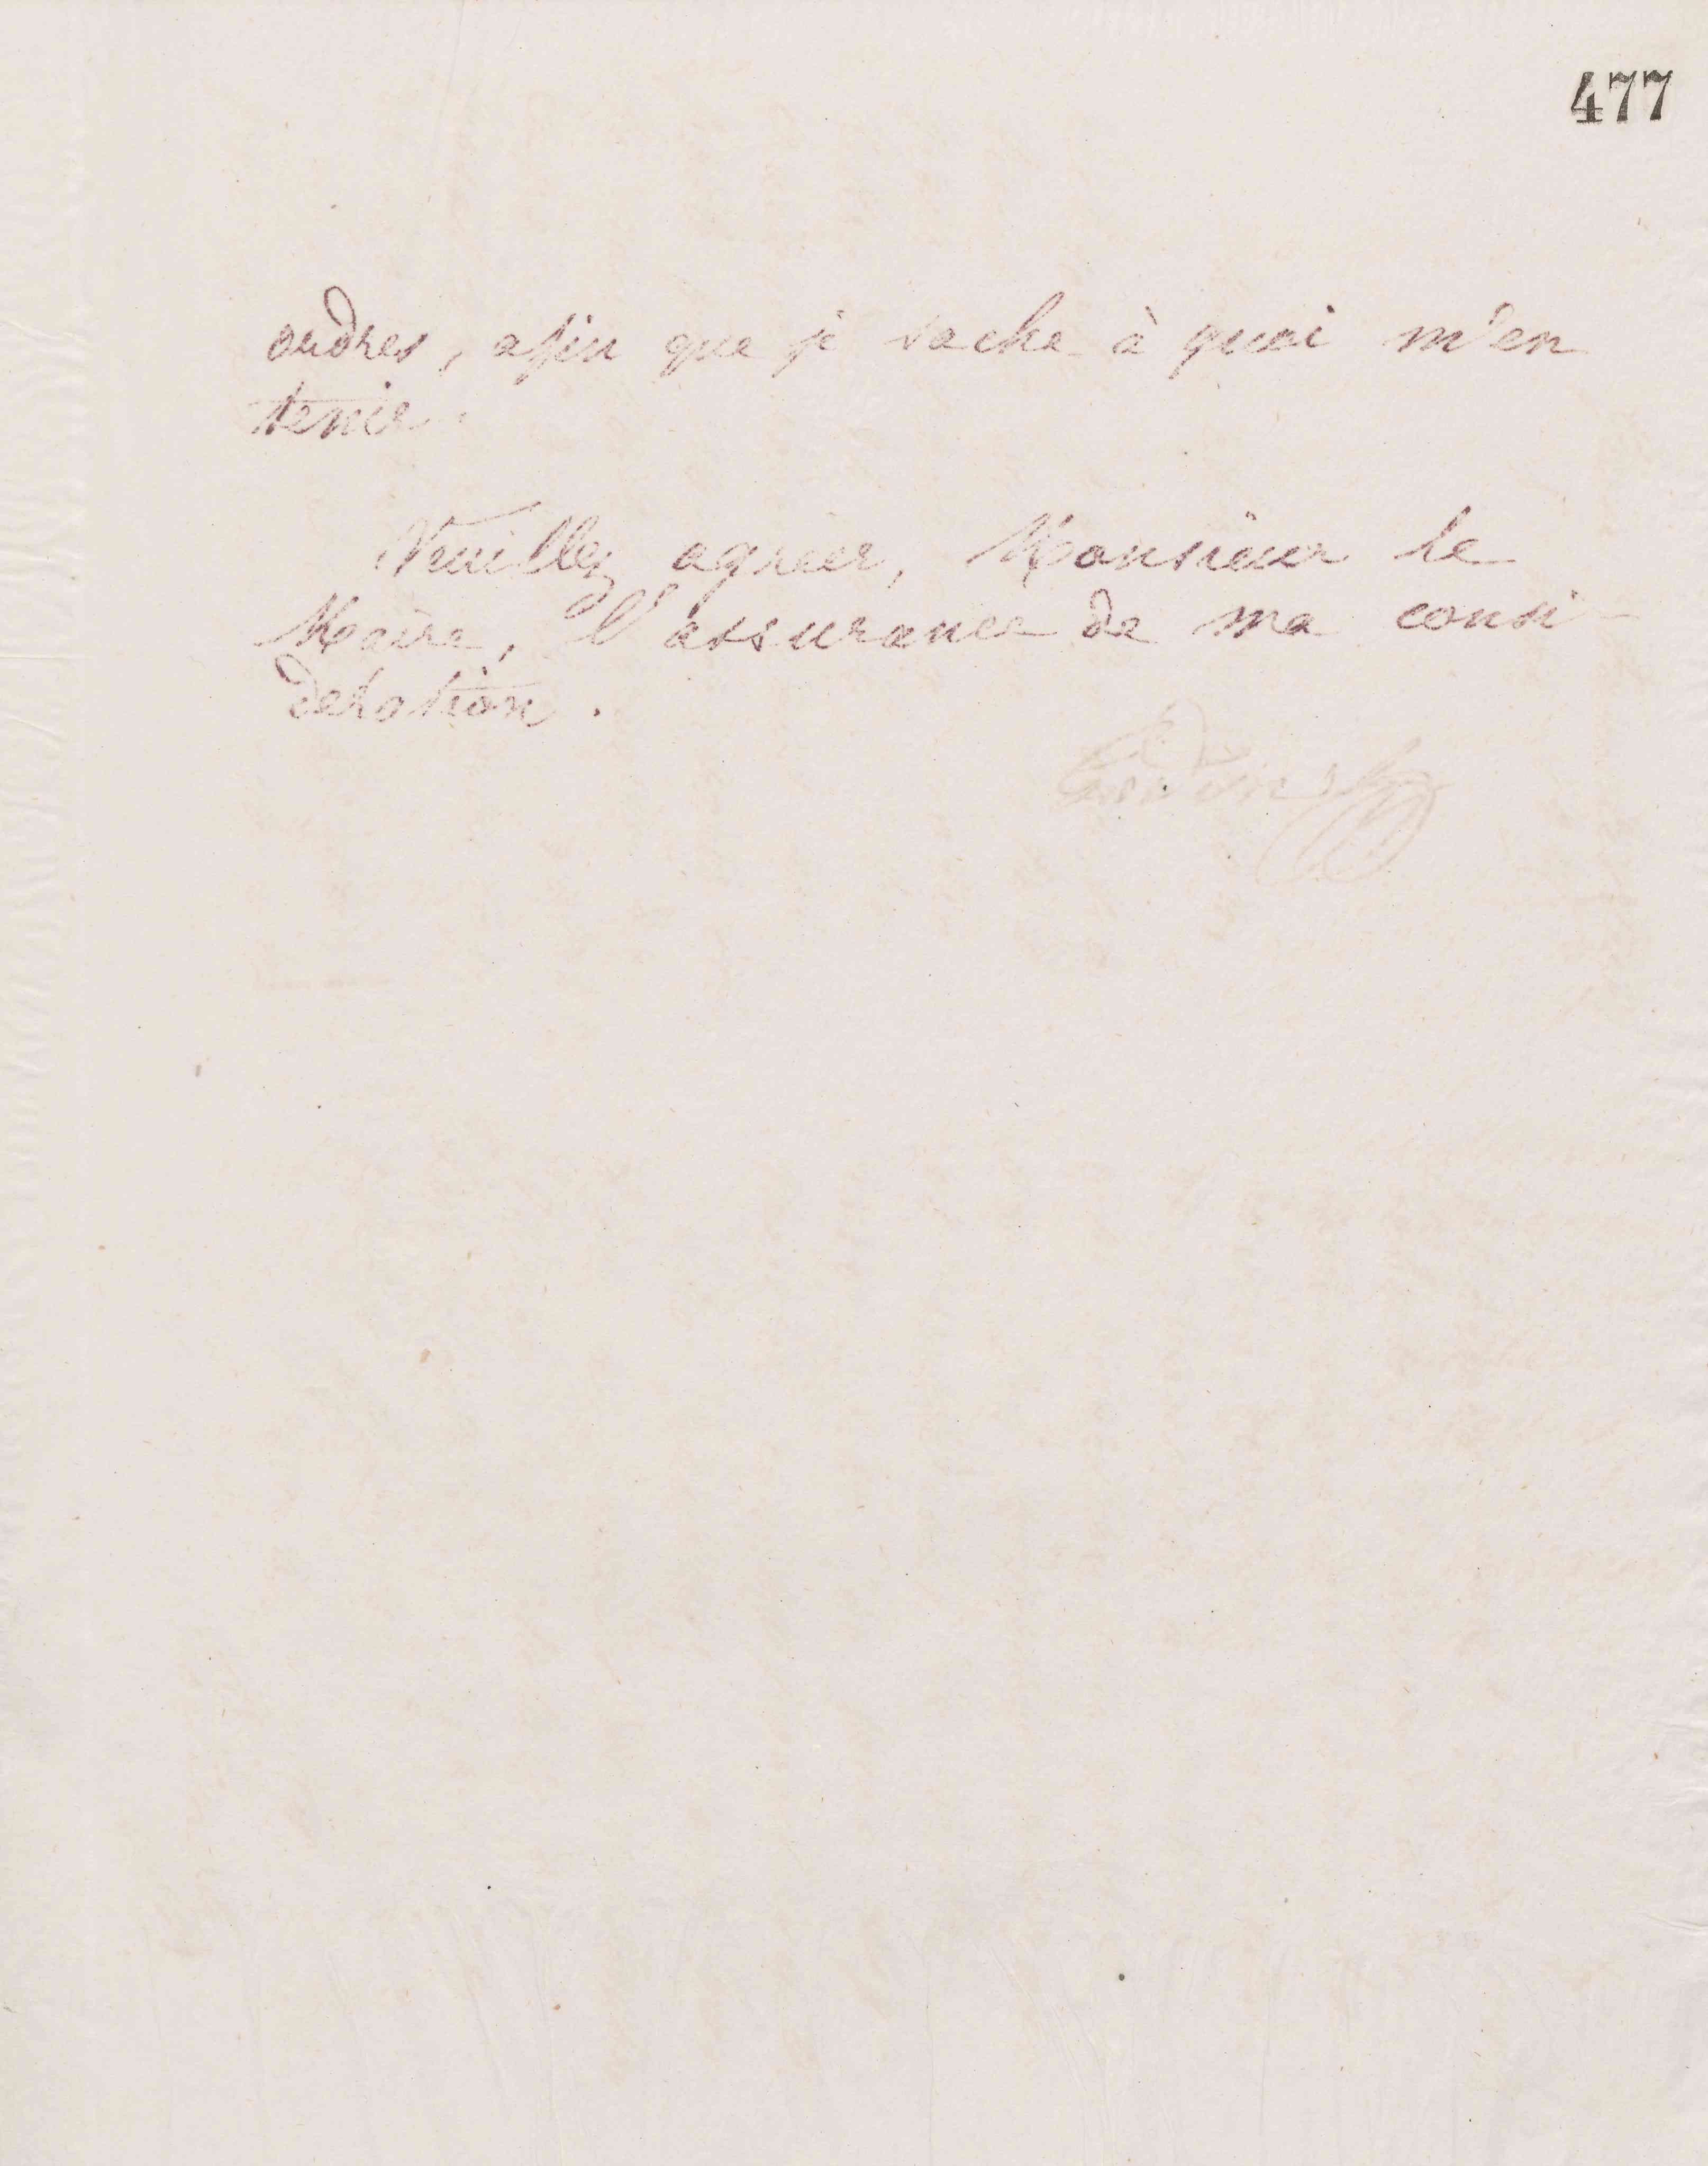 477
ordres, afin que je sache à quoi m'en
tenir.
Veuillez agréer, Monsieur le
Maire, l'assurance de ma consi-
dération.